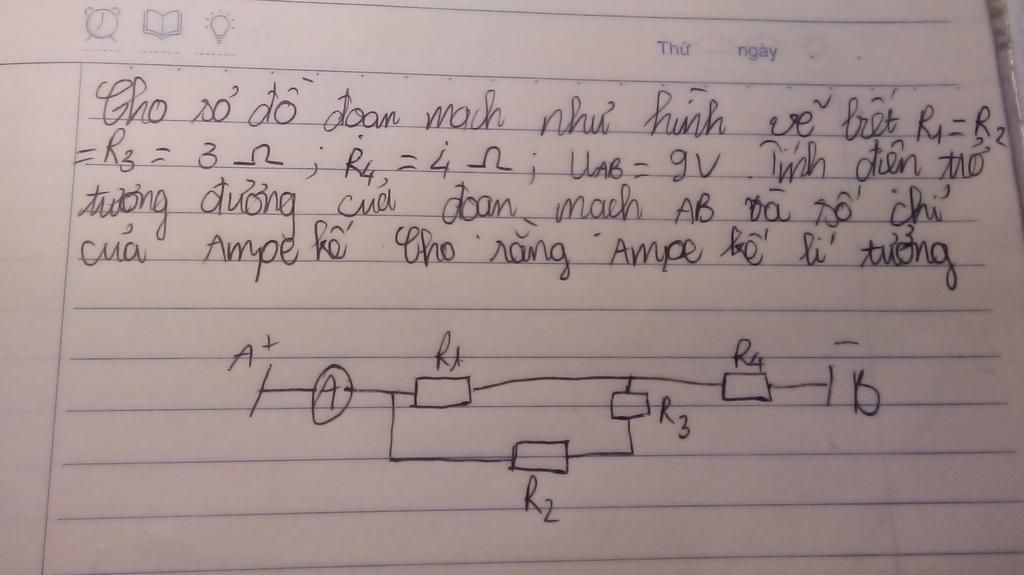 Thứ ngày
Cho sơ đồ đoạn mạch như hình vẽ biết R1 = R2
= R3 = 3 Ω ; R4 = 4 Ω ; UAB = 9V Tính điện trở
tương đương của đoạn mạch AB và số chỉ
của Ampe kế Cho rằng Ampe kế lí tưởng
A + R1 R4 -
A B
R3
R2